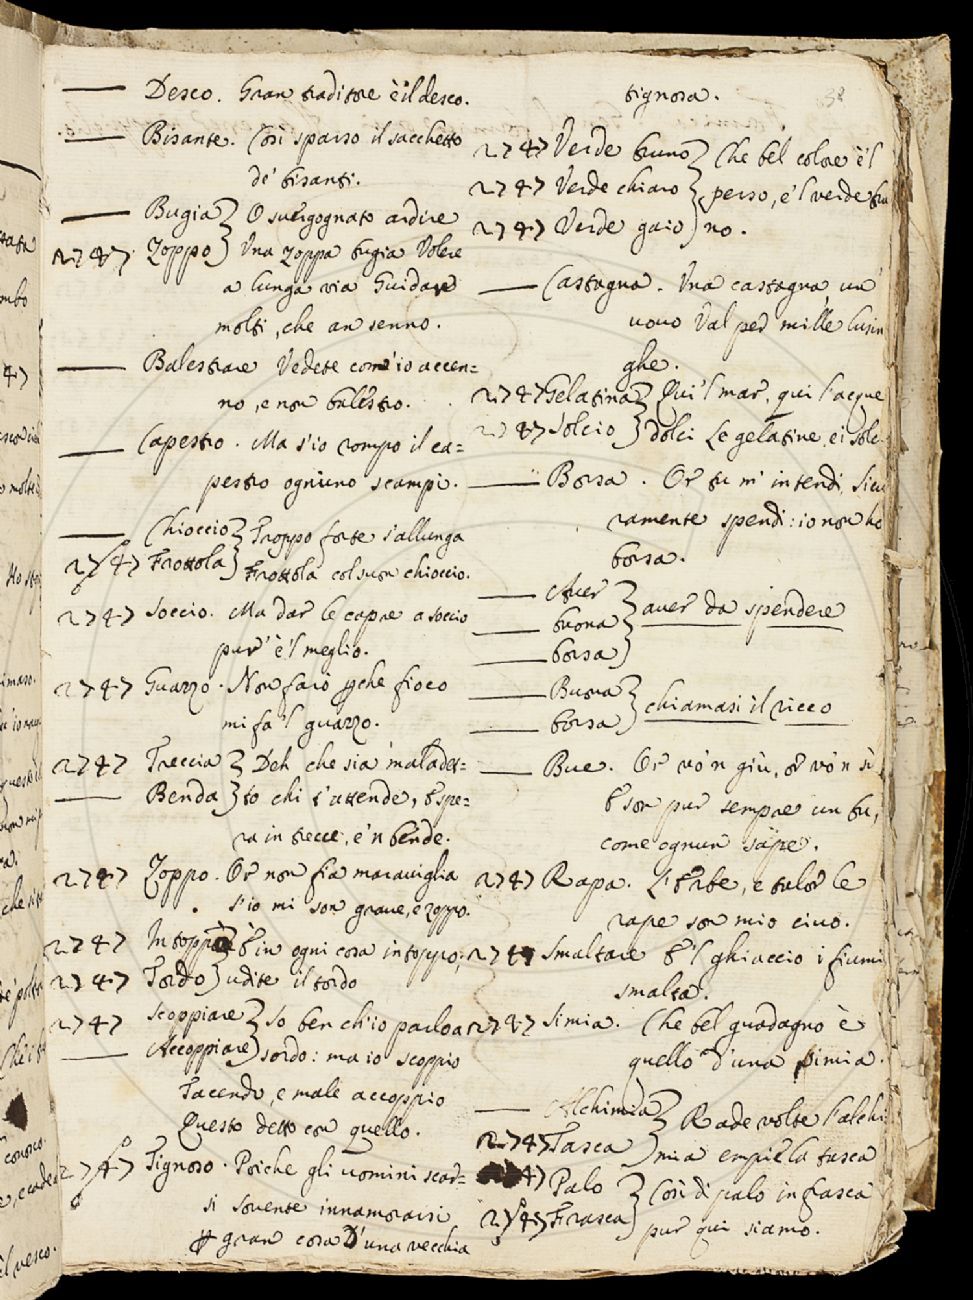 Desco. Gran traditore è il desco.
Bisante. Così sparso il sacchetto
de' bisanti.
Bugia } O suergognato ardire
2747 Zoppo } Una zoppa bugia Volere
a lunga via Guidare
molti, che an senno.
Balestrare Vedete com'io accen=
no, e non balestro.
Capestro. Ma s'io rompo il ca=
pestro ogniuno scampi.
Chioccio } Troppo forte s'allunga
2747 Frottola } Frottola col suon chioccio.
2747 Soccio. Ma dar le capre a soccio
pur' è 'l meglio.
2747 Guazzo. Non farò che fioco
mi fa 'l guazzo.
2747 Treccia } Deh che sia maladet=
Benda } to chi s'attende, e spe=
ra in trecce, e'n bende.
2747 Zoppo. Or non fia marauiglia
s'io mi son graue, e zoppo.
2747 Intoppo } E in ogni cosa intoppo;
2747 Tordo } udite il tordo
2747 Scoppiare } So ben ch'io parlo a
Accoppiare } sordo: ma io scoppio
Tacendo, e male accoppio
Questo detto con quello.
2747 Tignoso. Poiche gli uomini scar=
si souente innamorarsi
gran cosa D'una vecchia
tignosa. 38
2747 Verde bruno } Che bel colore è 'l
2747 Verde chiaro } perso, e 'l verde bru
2747 Verde gaio } no.
Castagna. Una castagna, un
uouo Val per mille lusin
ghe.
2747 Gelatina } Qui 'l mar, qui l'acque
2747 Solcio } dolci Le gelatine, e i solci
Borsa. Or tu m'intendi, sicu
ramente spendi: io non ho
borsa.
Auer
buona } auer da spendere
borsa
Buona } chiamasi il ricco
borsa
Bue. Or vo'n giù, or vo'n sù
E son pur sempre un bu,
come ognun sape.
2747 Rapa. L'Erbe, e talor le
rape son mio ciuo.
2747 Smaltare E 'l ghiaccio i fiumi
smalta.
2747 Simia. Che bel guadagno è
quello d'una simia.
Alchimia } Rade volte l'alchi
2747 Tasca } mia empiè la tasca
Palo } Così di palo in frasca
2747 Frasca } pur qui siamo.